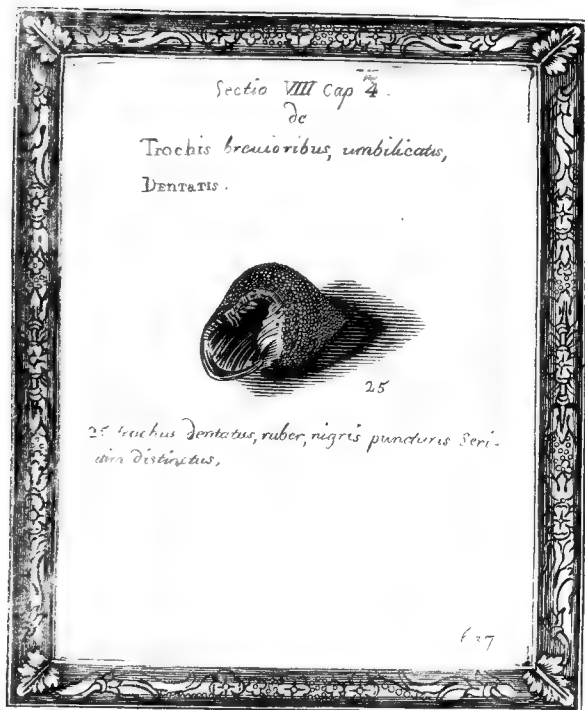 Sectio VIIII Cap 4.
de
Trochis breuioribus, umbilicatis,
DENTATIS.
25
25 trochus dentatus, ruber, nigris puncturis Seri-
atim distinctus,